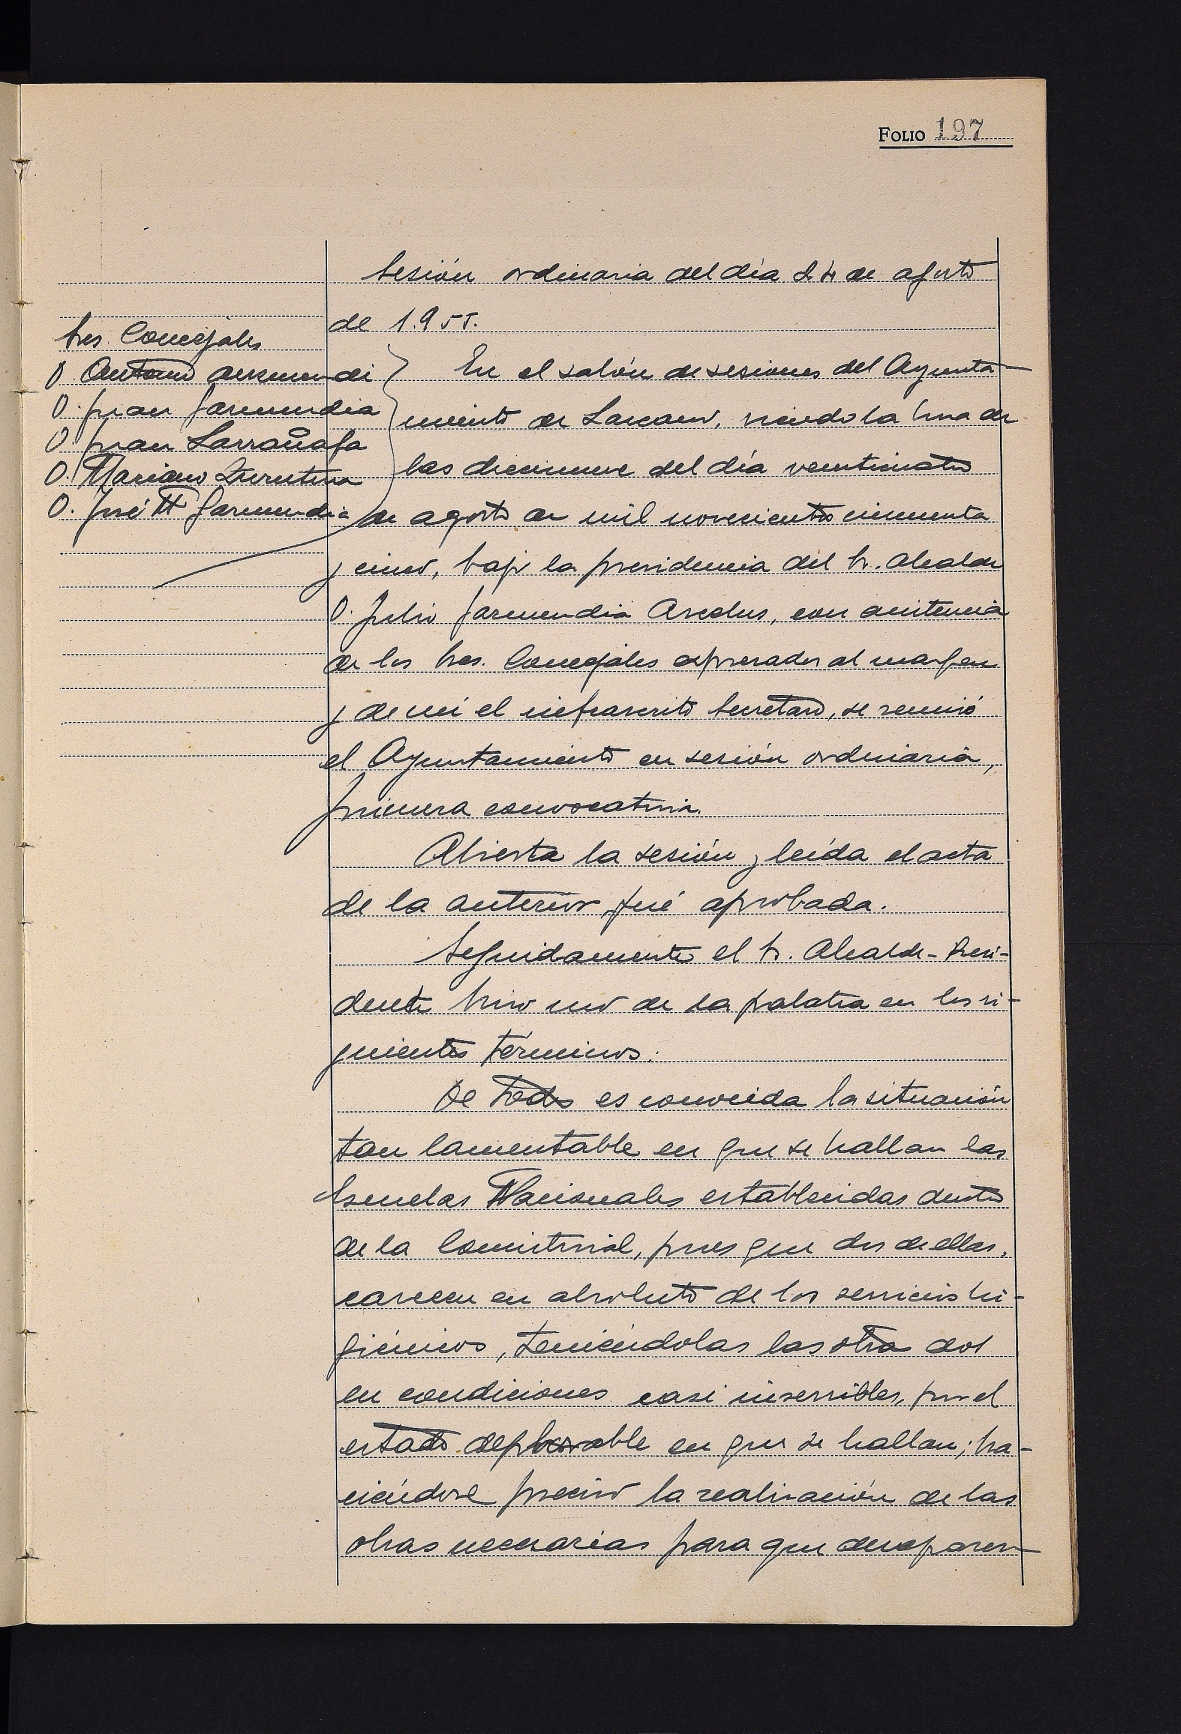 FOLIO 197
Sesión ordinaria del día 24 de agosto
de 1.955.
Sres. Concejales
D. Antonio Aurmendi
D. Juan Garmendia
D. Juan Larrañaga
D. Mariano Iturrioz
D. José Mª Garmendia
En el salón de sesiones del Ayunta-
miento de Lazcano, siendo la hora de
las diecinueve del día veinticuatro
de agosto de mil novecientos cincuenta
y cinco, bajo la presidencia del Sr. Alcalde
D. Julio Garmendia Ascelus, con asistencia
de los Sres. Concejales expresados al margen
y de mí el infrascrito Secretario, se reunió
el Ayuntamiento en sesión ordinaria,
primera convocatoria.
Abierta la sesión y leída el acta
de la anterior, fué aprobada.
Seguidamente el Sr. Alcalde-Presi-
dente hizo uso de la palabra en los si-
guientes términos:
De todos es conocida la situación
tan lamentable en que se hallan las
Escuelas Nacionales establecidas dentro
de la Consistorial, pues que dos de ellas,
carecen en absoluto de los servicios hi-
giénicos, teniéndolas las otras dos
en condiciones casi inservibles, por el
estado deplorable en que se hallan; ha-
ciéndose preciso la realización de las
obras necesarias para que desaparez-